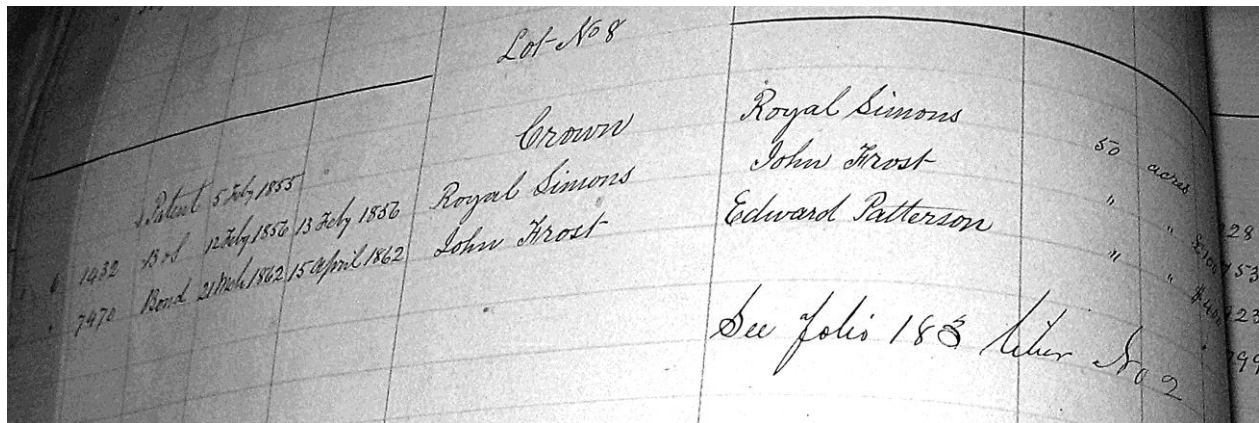 Lot No 8
Patent 5 Feby 1855 Crown Royal Simons 50 acres
1432 B of S 12 Feby 1856 13 Feby 1856 Royal Simons John Frost " " £100
7470 Bond 21 Mch 1862 15 April 1862 John Frost Edward Patterson " "
See folio 183 Liber No 2